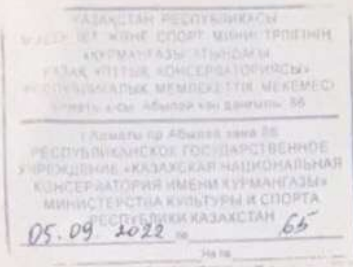 ҚАЗАҚСТАН РЕСПУБЛИКАСЫ
МӘДЕНИЕТ ЖӘНЕ СПОРТ МИНИСТРЛІГІНІҢ
«ҚҰРМАНҒАЗЫ АТЫНДАҒЫ
ҚАЗАҚ ҰЛТТЫҚ КОНСЕРВАТОРИЯСЫ»
РЕСПУБЛИКАЛЫҚ МЕМЛЕКЕТТІК МЕКЕМЕСІ
Алматы қ-сы, Абылай хан даңғылы, 86
г.Алматы пр.Абылай хана 86
РЕСПУБЛИКАНСКОЕ ГОСУДАРСТВЕННОЕ
УЧРЕЖДЕНИЕ «КАЗАХСКАЯ НАЦИОНАЛЬНАЯ
КОНСЕРВАТОРИЯ ИМЕНИ КУРМАНГАЗЫ»
МИНИСТЕРСТВА КУЛЬТУРЫ И СПОРТА
РЕСПУБЛИКИ КАЗАХСТАН
05.09 2022 № 65
На №